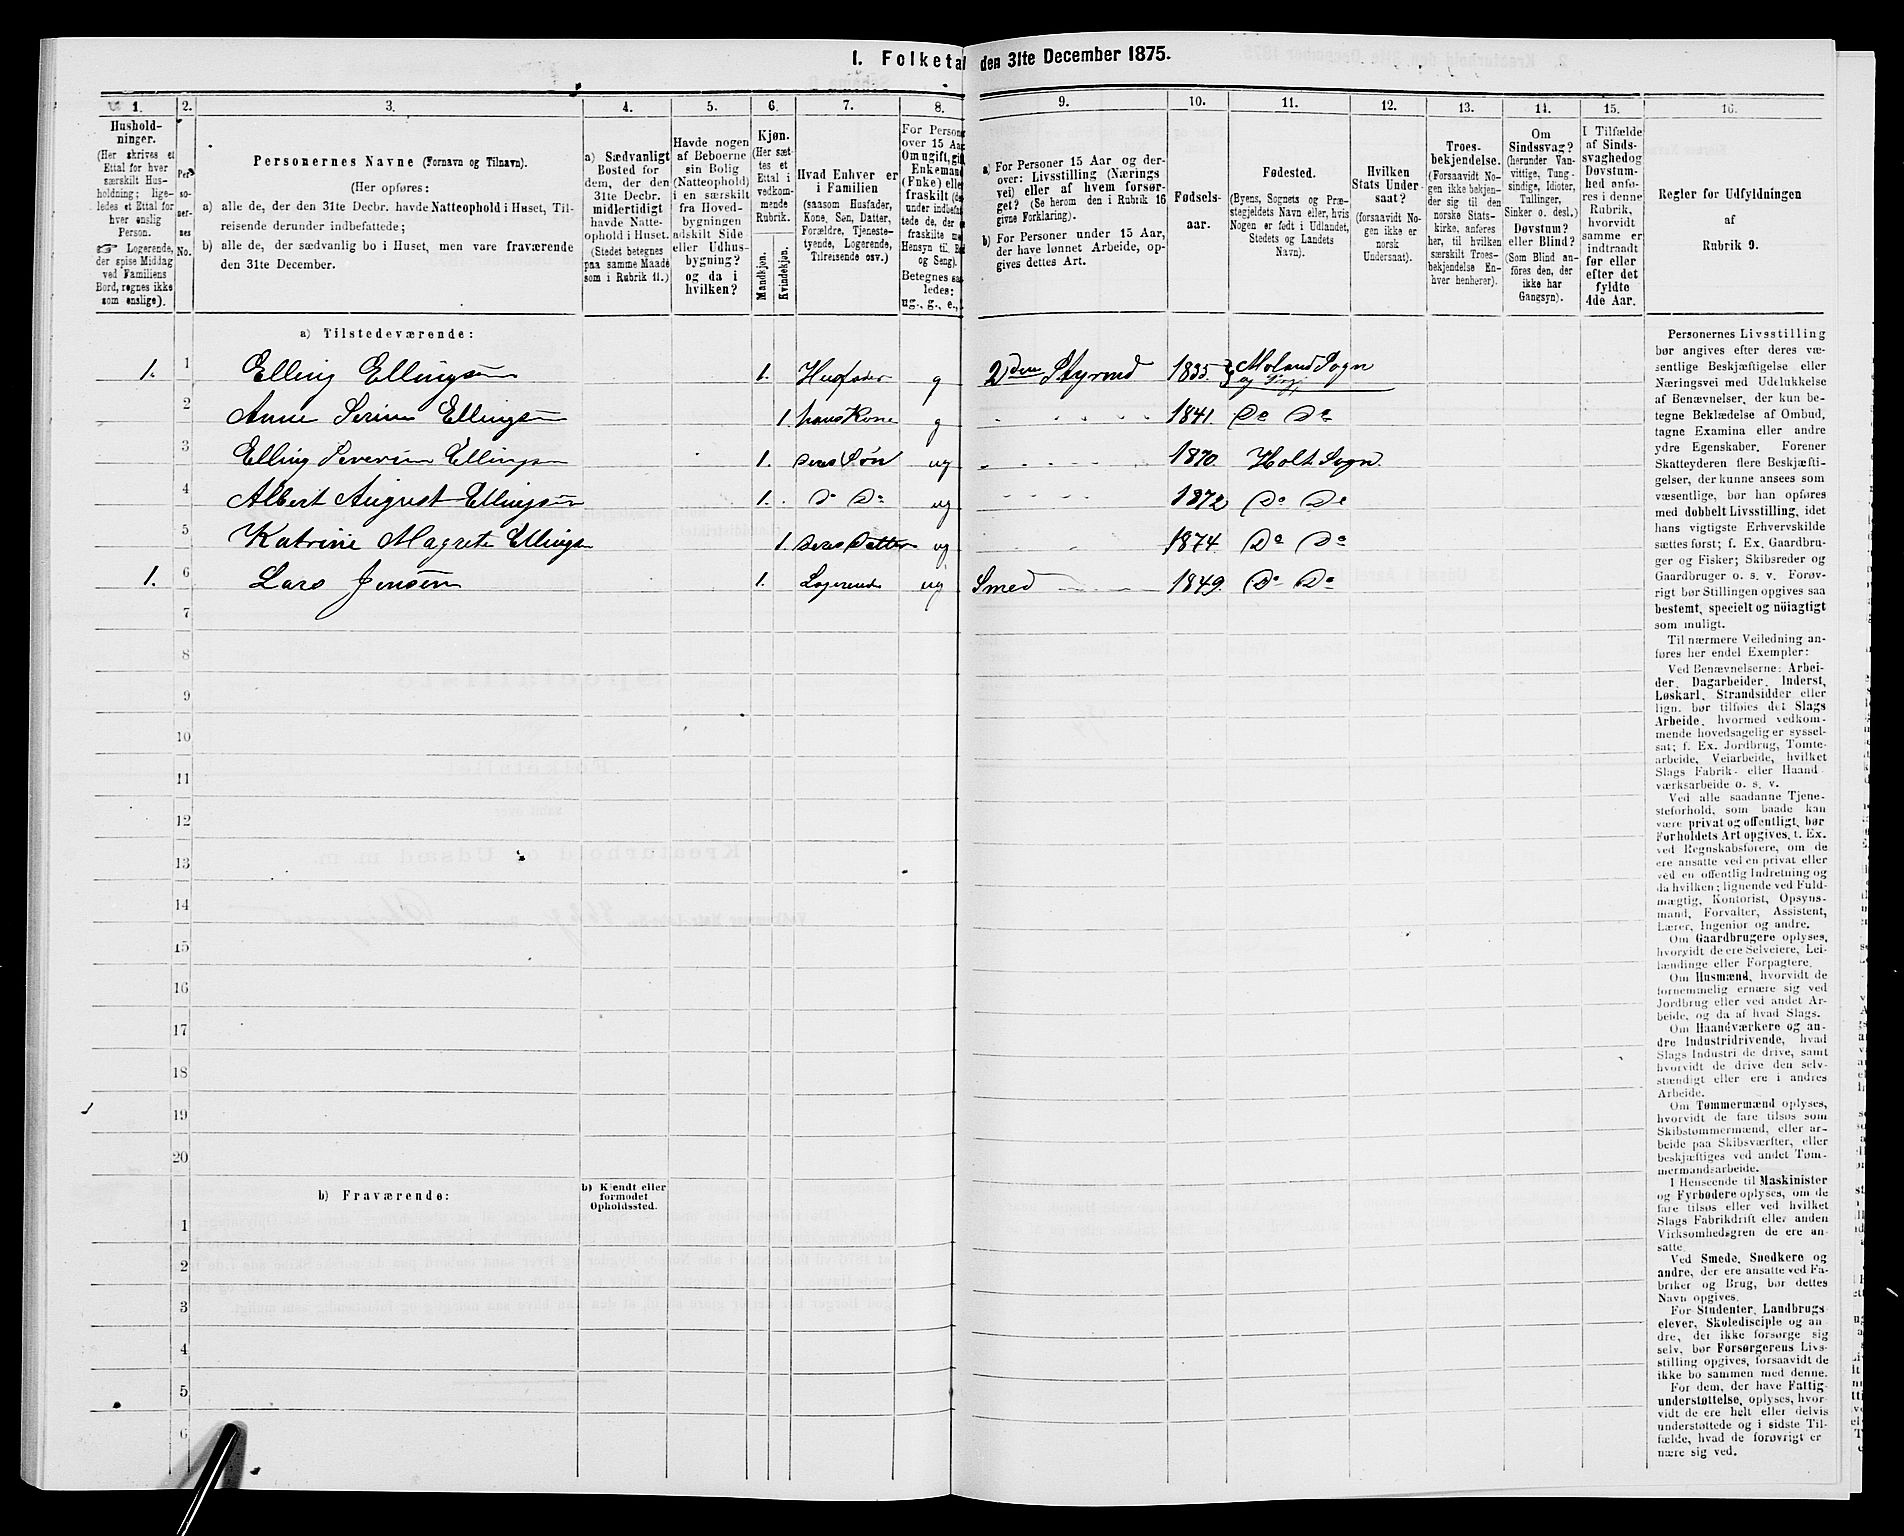 1. Folketal den 31te December 1875.
1. 2. 3. 4. 5. 6. 7. 8. 9. 10. 11. 12. 13. 14. 15. 16.
Hushold-
ninger.
(Her skrives et
Ettal for hver
særskilt Hus-
holdning; lige-
ledes et Ettal for
hver enslig
Person.
☞ Logerende,
der spise Middag
ved Familiens
Bord, regnes ikke
som enslige).
Per-
so-
ner-
nes
No.
Personernes Navne (Fornavn og Tilnavn).
(Her opføres:
a) alle de, der den 31te Decbr. havde Natteophold i Huset, Til-
reisende derunder indbefattede;
b) alle de, der sædvanlig bo i Huset, men vare fraværende
den 31te December.
a) Sædvanligt
Bosted for
dem, der den
31te Decbr.
midlertidigt
havde Natte-
ophold i Huset.
(Stedet betegnes
paa samme Maade
som i Rubrik 11.)
Havde nogen
af Beboerne
sin Bolig
(Natteophold)
i en særskilt
fra Hoved-
bygningen
adskilt Side-
eller Udhus-
bygning?
og da i
hvilken?
Kjøn.
(Her sæt-
tes et
Ettal i
vedkom-
mende
Rubrik.
Mandkjøn.
Kvindekjøn.
Hvad Enhver er
i Familien
(saasom Husfader,
Kone, Søn, Datter,
Forældre, Tjeneste-
tyende, Logerende,
Tilreisende osv.)
For Person
over 15 Aar
Om ugift, gift,
Enkemand
(Enke) elle
fraskilt (de
under indbefat-
tede de, der e
fraskilte m
Hensyn til B
og Seng).
Betegnes saa
ledes:
ug., g., e.,
a) For Personer 15 Aar og der-
over: Livsstilling (Nærings
vei) eller af hvem forsør-
get? (Se herom den i Rubrik 16
givne Forklaring).
b) For Personer under 15 Aar,
der have lønnet Arbeide, op-
gives dettes Art.
Fødsels-
aar.
Fødested.
(Byens, Sognets og Præ-
stegjeldets Navn eller, hvis
Nogen er født i Udlandet,
Stedets og Landets
Navn).
Hvilken
Stats Under-
saat?
(forsaavidt No-
gen ikke er
norsk
Undersaat).
Troes-
bekjendelse.
(Forsaavidt No-
gen ikke bekjen-
der sig til den
norske Stats-
kirke, anføres
her, til hvilken
særskilt Troes-
bekjendelse En-
hver henhører).
Om
Sindssvag?
(herunder Van-
vittige, Tung-
sindige, Idioter,
Tullinger,
Sinker o. desl.)
Døvstum?
eller Blind?
(Som Blind an-
føres den, der
ikke har
Gangsyn).
I Tilfælde
af Sinds-
svaghed og
Døvstum-
hed anfø-
res i denne
Rubrik,
hvorvidt
samme er
indtraadt
før eller
efter det
fyldte
4de Aar.
Regler for Udfyldningen
af
Rubrik 9.
a) Tilstedeværende:
1. 1 Elling Ellingsen 1. Husfader g 2den Styrmd 1835. Moland Sogn
2 Anne Serine Ellingsen 1. hans Kone g 1841. Do Do
3 Elling Severin Ellingsen 1. deres Søn ug 1870. Holt Sogn.
4 Albert August Ellingsen 1. Do Do ug 1872 Do Do
5 Katrine Magrete Ellingsen 1. deres Datter ug 1874 Do Do
1. 6 Lars Jensen 1. Logerende ug Smed 1849. Do Do
7
8
9
10
11
12
13
14
15
16
17
18
19
20
b) Fraværende:
b) Kjendt eller
formodet
Opholdssted.
1
2
3
4
5
6
Personernes Livsstilling
bør angives efter deres væ-
sentlige Beskjæftigelse eller
Næringsvei med Udelukkelse
af Benævnelser, der kun be-
tegne Beklædelse af Ombud,
tagne Examina eller andre
ydre Egenskaber. Forener
Skatteyderen flere Beskjæfti-
gelser, der kunne ansees som
væsentlige, bør han opføres
med dobbelt Livsstilling, idet
hans vigtigste Erhvervskilde
sættes først; f. Ex. Gaardbru-
ger og Fisker; Skibsreder og
Gaardbruger o. s. v. Forøv-
rigt bør Stillingen opgives saa
bestemt, specielt og nøiagtigt
som muligt.
Til nærmere Veiledning an-
føres her endel Exempler:
Ved Benævnelserne: Arbei-
der, Dagarbeider, Inderst,
Løskarl, Strandsidder eller
lign. bør tilføies det Slags
Arbeide, hvormed vedkom-
mende hovedsagelig er syssel-
sat; f. Ex. Jordbrug, Tomte-
arbeide, Veiarbeide, hvilket
Slags Fabrik- eller Haand-
værksarbeide o. s. v.
Ved alle saadanne Tjene-
steforhold, som baade kan
være privat og offentligt, bør
Forholdets Art opgives, t. Ex.
ved Regnskabsførere, om de
ere ansatte ved en privat eller
ved en offentlig Indretning og
da hvilken; lignende ved Fuld-
mægtig, Kontorist, Opsyns-
mand, Forvalter, Assistent,
Lærer, Ingeniør og andre.
Om Gaardbrugere oplyses,
hvorvidt de ere Selveiere, Lei-
lændinge eller Forpagtere.
Om Husmænd, hvorvidt de
fornemmelig ernære sig ved
Jordbrug eller ved andet Ar-
beide, og da af hvad Slags.
Om Haandværkere og an-
dre Industridrivende, hvad
Slags Industri de drive, samt
hvorvidt de drive den selv-
stændigt eller ere i andres
Arbeide.
Om Tømmermænd oplyses,
hvorvidt de fare tilsøs som
Skibstømmermænd, eller ar-
beide paa Skibsværfter, eller
beskjæftiges ved andet Tøm-
mermandsarbeide.
I Henseende til Maskinister
og Fyrbødere oplyses, om de
fare tilsøs eller ved hvilket
Slags Fabrikdrift eller anden
Virksomhedsgren de ere an-
satte.
Ved Smede, Snedkere og
andre, der ere ansatte ved Fa-
briker og Brug, bør dettes
Navn opgives.
For Studenter, Landbrugs-
elever, Skoledisciple og an-
dre, der ikke forsørge sig
selv, bør Forsørgerens Livs-
stilling opgives, forsaavidt de
ikke bo sammen med denne.
For dem, der have Fattig-
understøttelse, oplyses, hvor-
vidt de ere helt eller delvis
understøttede og i sidste Til-
fælde, hvad de forøvrigt er-
nære sig ved.